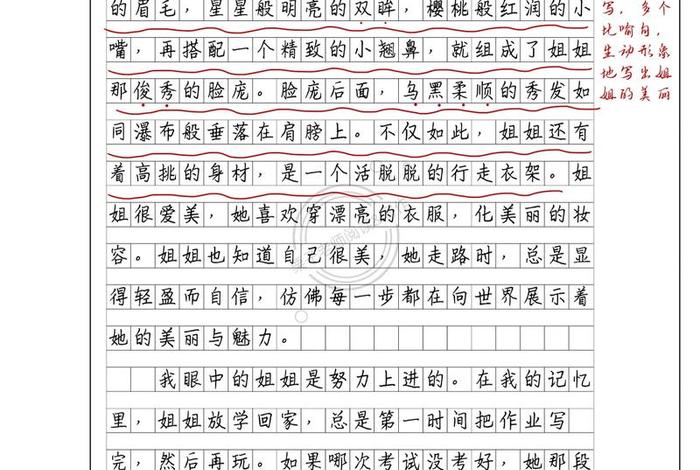 的眉毛，星星般明亮的双眸，樱桃般红润的小
嘴，再搭配一个精致的小翘鼻，就组成了姐姐
那俊秀的脸庞。脸庞后面，乌黑柔顺的秀发如
同瀑布般垂落在肩膀上。不仅如此，姐姐还有
着高挑的身材，是一个活脱脱的行走衣架。姐
姐很爱美，她喜欢穿漂亮的衣服，化美丽的妆
容。姐姐也知道自己很美，她走路时，总是显
得轻盈而自信，仿佛每一步都在向世界展示着
她的美丽与魅力。
我眼中的姐姐是努力上进的。在我的记忆
里，姐姐放学回家，总是第一时间把作业写
完，然后再玩。如果哪次考试没考好，她那段
写，多个
比喻句，
生动形象
地写出姐
姐的美丽